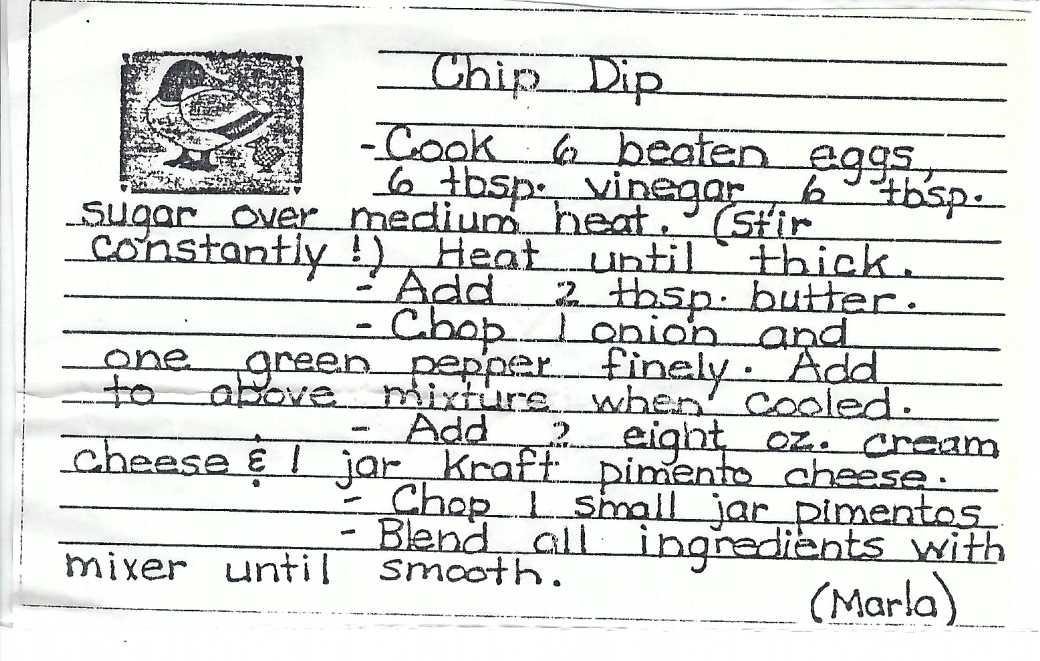 Chip Dip
- Cook 6 beaten eggs,
6 tbsp. vinegar, 6 tbsp.
sugar over medium heat. (Stir
constantly!) Heat until thick.
- Add 2 tbsp. butter.
- Chop 1 onion and
one green pepper finely. Add
to above mixture when cooled.
- Add 2 eight oz. cream
cheese & 1 jar Kraft pimento cheese.
- Chop 1 small jar pimentos
- Blend all ingredients with
mixer until smooth.
(Marla)